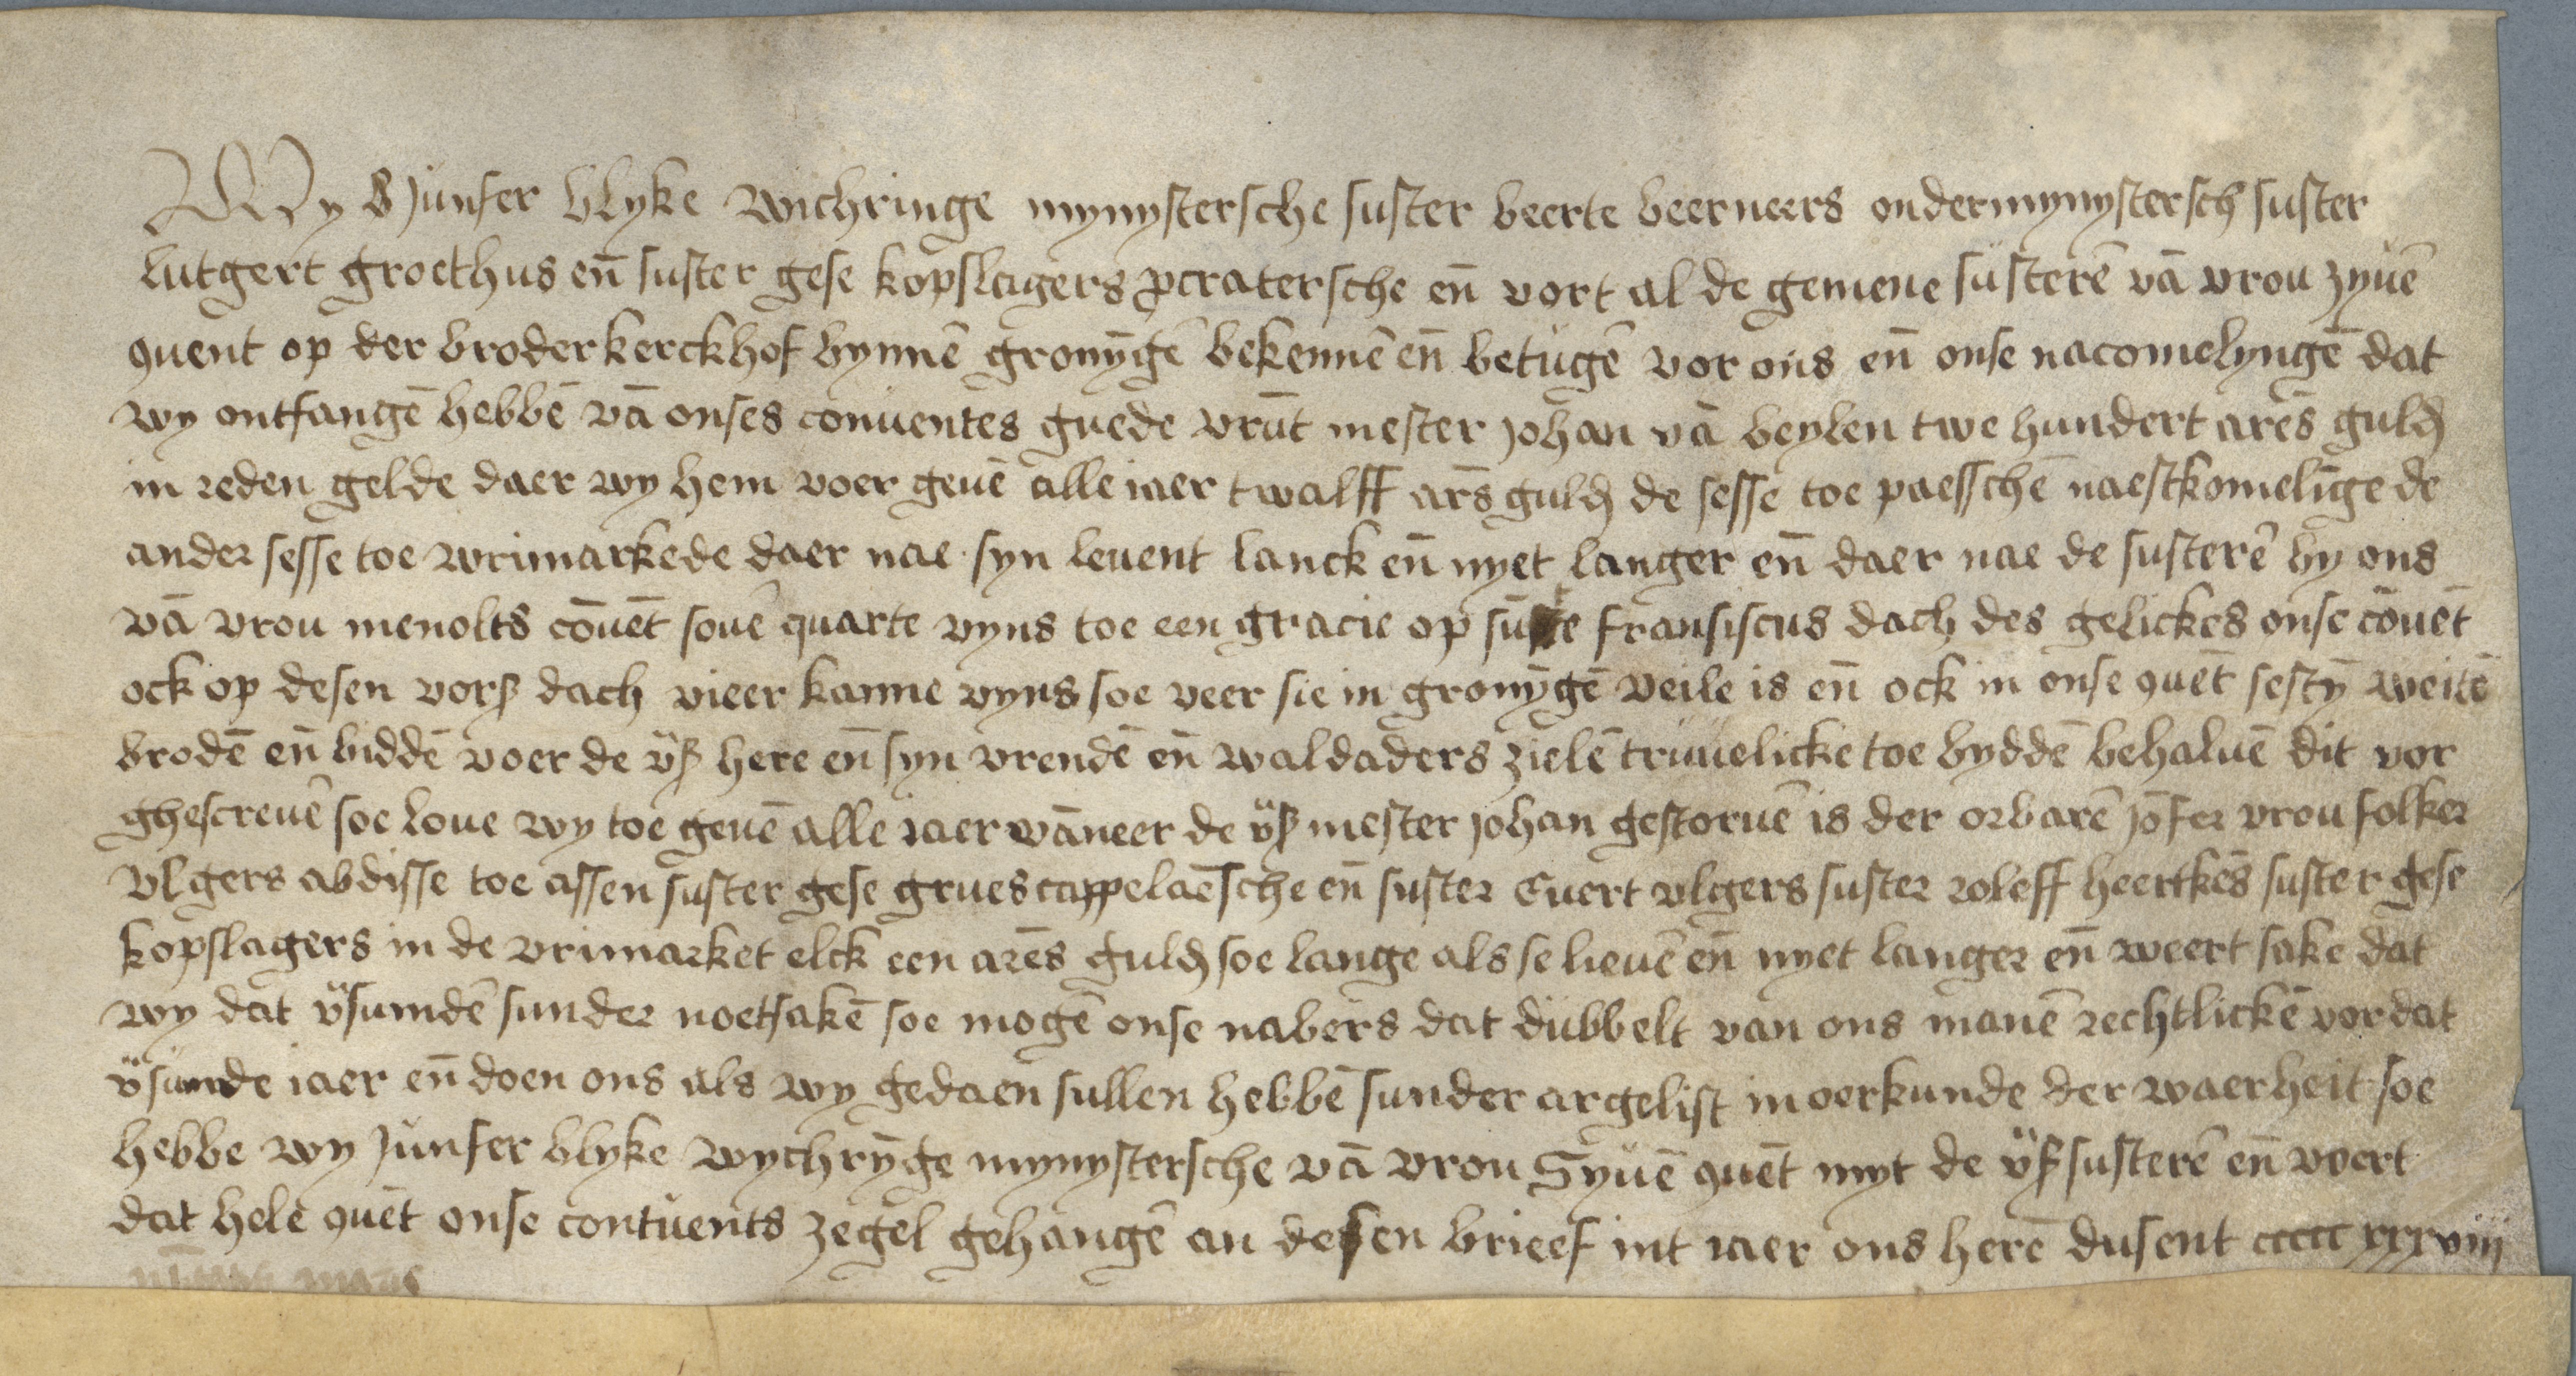 Wy Junfer vlyke wichringe mynystersche suster beerte beerneers ondermynystersch suster
lutgert groethus eñ suster gese kopslagers pcratersche eñ vort al de gemene susterē vā vrou zyuē
quent op der broderkerckhof bynnē gronȳgē bekennē eñ betugē vor ons eñ onse nacomelyngē dat
wy ontfangē hebbē vā onses conuentes guede vrūt mester johan vā beylen twe hundert arēs guld
in reden gelde daer wy hem voer geuē alle iaer twalff ar̄s guld de sesse toe paesschē naestkomelīge de
ander sesse toe vrimarkede daer nae syn leuent lanck eñ nyet langer eñ daer nae de susterē by ons
vā vrou menolts cōuēt souē quarte vyns toe een gracie op sūte fransiscus dach des gelickes onse cōuēt
ock op desen vorß dach vieer kanne vyns soe veer sie in gronȳgē veile is eñ ock in onse quēt sestȳ weitē
brodē eñ biddē voer de v̄ß here eñ syn vrendē eñ waldaders zielē truuelicke toe byddē behaluē dit vor
ghescreuē soe loue wy toe geuē alle iaer wāneer de v̄ß mester johan gestoruē is der orbarē jōfer vrou folker
vlgers abdisse toe assen suster gese grues cappelaēsche eñ suster Euert vlgers suster roleff heertkēs suster gese
kopslagers in de vrimarket elck een arēs guld soe lange als se lieuē eñ nyet langer eñ weert sake dat
wy dat v̄sumdē sunder noetsakē soe mogē onse nabers dat dubbelt van ons manē rechtlickē vor dat
v̄sumde iaer eñ doen ons als wy gedaen sullen hebbē sunder argelist in oerkunde der waerheit soe
hebbe wy Junfer vlyke wychrȳge mynystersche vā vrou Syuē quēt myt de v̄ß susterē eñ voert
dat hele quēt onse contuents zegel gehangē an desen brieef int iaer ons herē dusent ccccc xxxviij